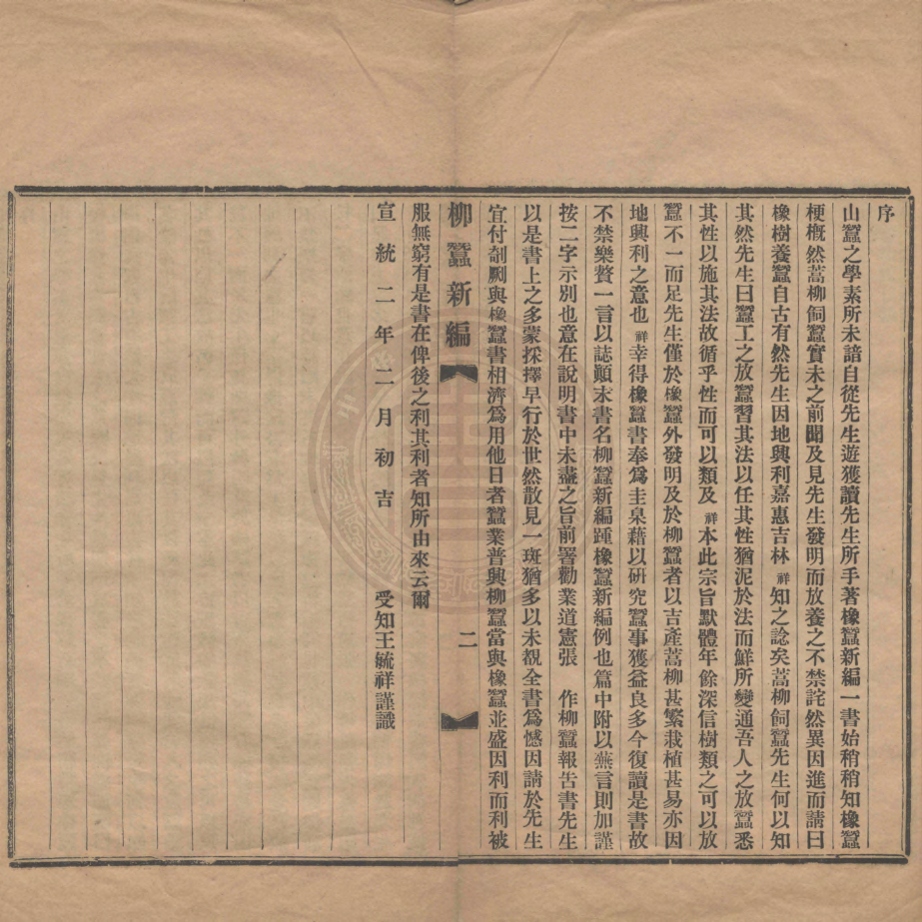 序
山蠶之學素所未諳自從先生遊獲讀先生所手著橡蠶新編一書始稍稍知橡蠶
梗槪然蒿柳飼蠶實未之前聞及見先生發明而放養之不禁詫然異因進而請曰
橡樹養蠶自古有然先生因地興利嘉惠吉林祥知之諗矣蒿柳飼蠶先生何以知
其然先生曰蠶工之放蠶習其法以任其性猶泥於法而鮮所變通吾人之放蠶悉
其性以施其法故循乎性而可以類及祥本此宗旨默體年餘深信樹類之可以放
蠶不一而足先生僅於橡蠶外發明及於柳蠶者以吉產蒿柳甚繁栽植甚易亦因
地興利之意也祥幸得橡蠶書奉爲圭臬藉以硏究蠶事獲益良多今復讀是書故
不禁樂贅一言以誌顚末書名柳蠶新編踵橡蠶新編例也篇中附以蕪言則加謹
按二字示別也意在說明書中未盡之旨前署勸業道憲張　作柳蠶報告書先生
以是書上之多蒙採擇早行於世然散見一斑猶多以未覩全書爲憾因請於先生
宜付剞劂與橡蠶書相濟爲用他日者蠶業普興柳蠶當與橡蠶並盛因利而利被
柳蠶新編　二
服無窮有是書在俾後之利其利者知所由來云爾
宣統二年二月初吉　受知王毓祥謹識